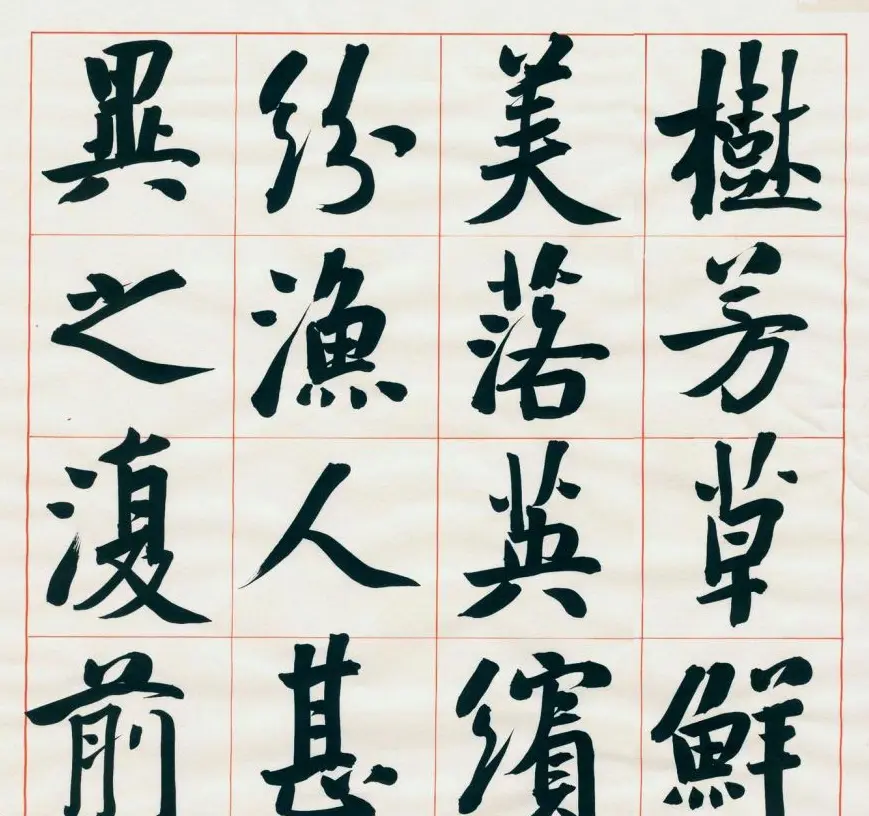 樹芳草鮮
美落英繽
紛漁人甚
異之復前